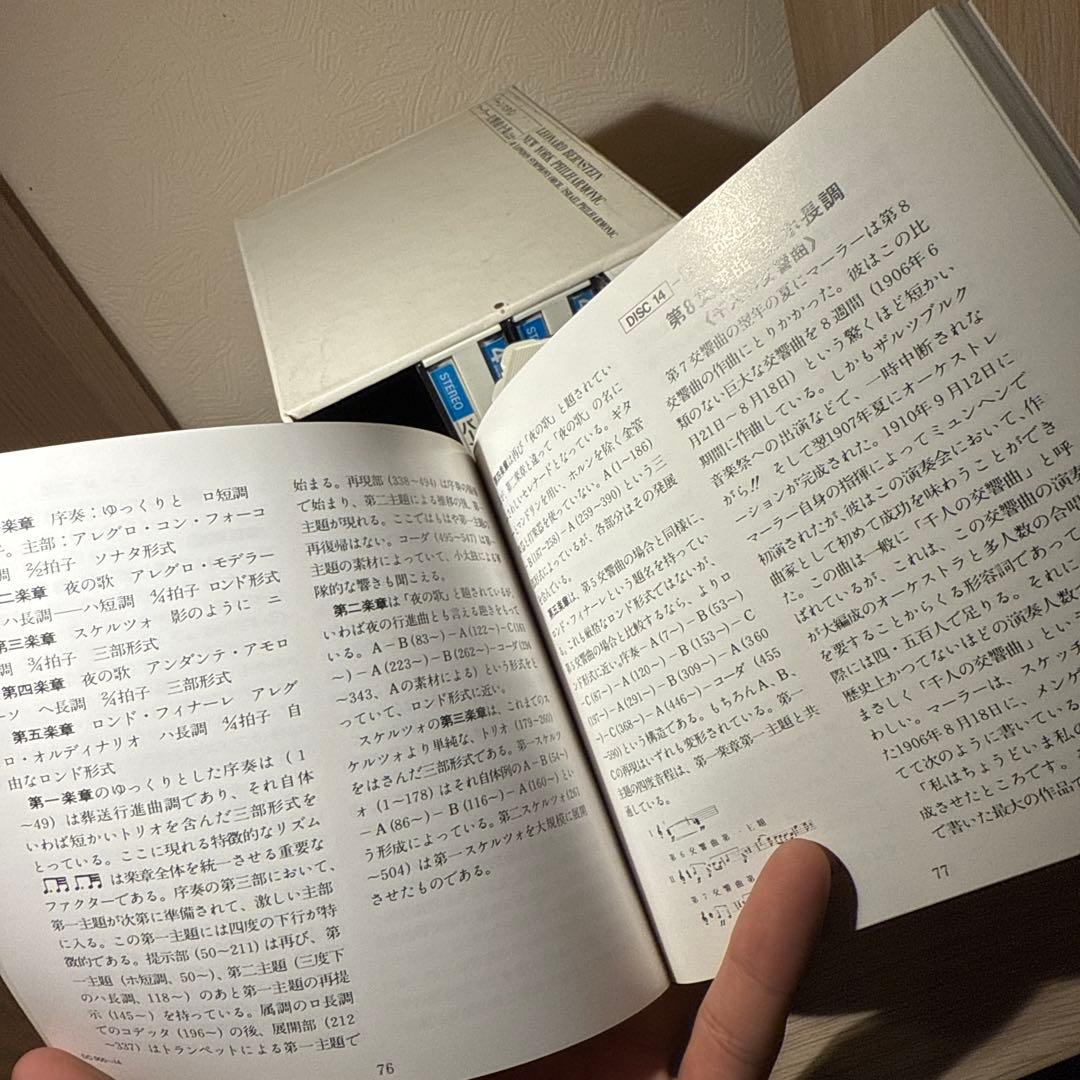 LEONARD BERNSTEIN
NEW YORK PHILHARMONIC
LONDON SYMPHONY ORCH. ISRAEL PHILHARMONIC
STEREO
楽章 序奏:ゆっくりと ロ短調
主部:アレグロ・コン・フォーコ
調 2/2拍子 ソナタ形式
二楽章 夜の歌 アレグロ・モデラー
ハ長調――ハ短調 4/4拍子 ロンド形式
第三楽章 スケルツォ 影のように ニ
調 3/4拍子 三部形式
第四楽章 夜の歌 アンダンテ・アモロ
ーソ ヘ長調 2/4拍子 三部形式
第五楽章 ロンド・フィナーレ アレグ
ロ・オルディナリオ ハ長調 4/4拍子 自
由なロンド形式
第一楽章のゆっくりとした序奏は(1
~49)は葬送行進曲調であり、それ自体
いわば短かいトリオを含んだ三部形式を
とっている。ここに現れる特徴的なリズム
は楽章全体を統一させる重要な
ファクターである。序奏の第三部において、
第一主題が次第に準備されて、激しい主部
に入る。この第一主題には四度の下行が特
徴的である。提示部(50~211)は再び、第
一主題(ホ短調、50~)、第二主題(三度下
のハ長調、118~)のあと第一主題の再提
示(145~)を持っている。属調のロ長調
でのコデッタ(196~)の後、展開部(212
~337)はトランペットによる第一主題で
76
始まる。再現部(338~494)は序奏の
で始まり、第二主題による推移の後、第一
主題が現れる。ここではもはや第一主題の
再復帰はない。コーダ(495~547)は第一
主題の素材によっていて、小太鼓による軍
隊的な響きも聞こえる。
第二楽章は「夜の歌」と題されているが、
いわば夜の行進曲とも言える趣きをもって
いる。A-B(83~)-A(122~)-C(161
~)-A(223~)-B(262~)-コーダ(294
~343、Aの素材による)という形式をと
っていて、ロンド形式に近い。
スケルツォの第三楽章は、これまでのス
ケルツォより単純な、トリオ(179~260)
をはさんだ三部形式である。第一スケルツ
ォ(1~178)はそれ自体例のA-B(54~)
-A(86~)-B(116~)-A(160~)とい
う形式によっている。第二スケルツォ(261
~504)は第一スケルツォを大規模に展開
させたものである。
第四楽章は再び「夜の歌」と題されてい
るが、第二楽章と違って「夜の歌」の名に
セレナードとなっている。ギタ
マンドリンを用い、ホルンを除く金管
打楽器を使っていない。A(1~186)
-B(187~258)-A(259~390)という三
部形式によっているが、各部分はその発展
を含んでいる。
第五楽章は、第5交響曲の場合と同様に、
ロンド・フィナーレという題名を持ってい
る。これも厳格なロンド形式ではないが、
第5交響曲の場合と比較するなら、よりロ
ンド形式に近い。序奏-A(7~)-B(53~)
-C(87~)-A(120~)-B(153~)-C
(197~)-A(291~)-B(309~)-A(360
~)-C(368~)-A(446~)-コーダ(455
~590)という構造である。もちろんA、B、
Cの再現はいずれも変形されている。第一
主題の四度音程は、第一楽章第一主題と共
通している。
第6交響曲第一主題
第7交響曲第
DISC 14
第8交響曲 変ホ長調
《千人の交響曲》
第7交響曲の翌年の夏にマーラーは第8
交響曲の作曲にとりかかった。彼はこの比
類のない巨大な交響曲を8週間(1906年6
月21日~8月18日)という驚くほど短かい
期間に作曲している。しかもザルツブルク
音楽祭への出演などで、一時中断されな
がら!! そして翌1907年夏にオーケストレ
ーションが完成された。1910年9月12日に
マーラー自身の指揮によってミュンヘンで
初演されたが、彼はこの演奏会において、作
曲家として初めて成功を味わうことができ
た。この曲は一般に「千人の交響曲」と呼
ばれているが、これは、この交響曲の演奏
が大編成のオーケストラと多人数の合唱
を要することからくる形容詞であって
際には四・五百人で足りる。それに
歴史上かつてないほどの演奏人数
まさしく「千人の交響曲」という
わしい。マーラーは、スケッチ
た1906年8月18日に、メンゲ
てて次のように書いている
「私はちょうどいま私の
成させたところです。
で書いた最大の作品で
77